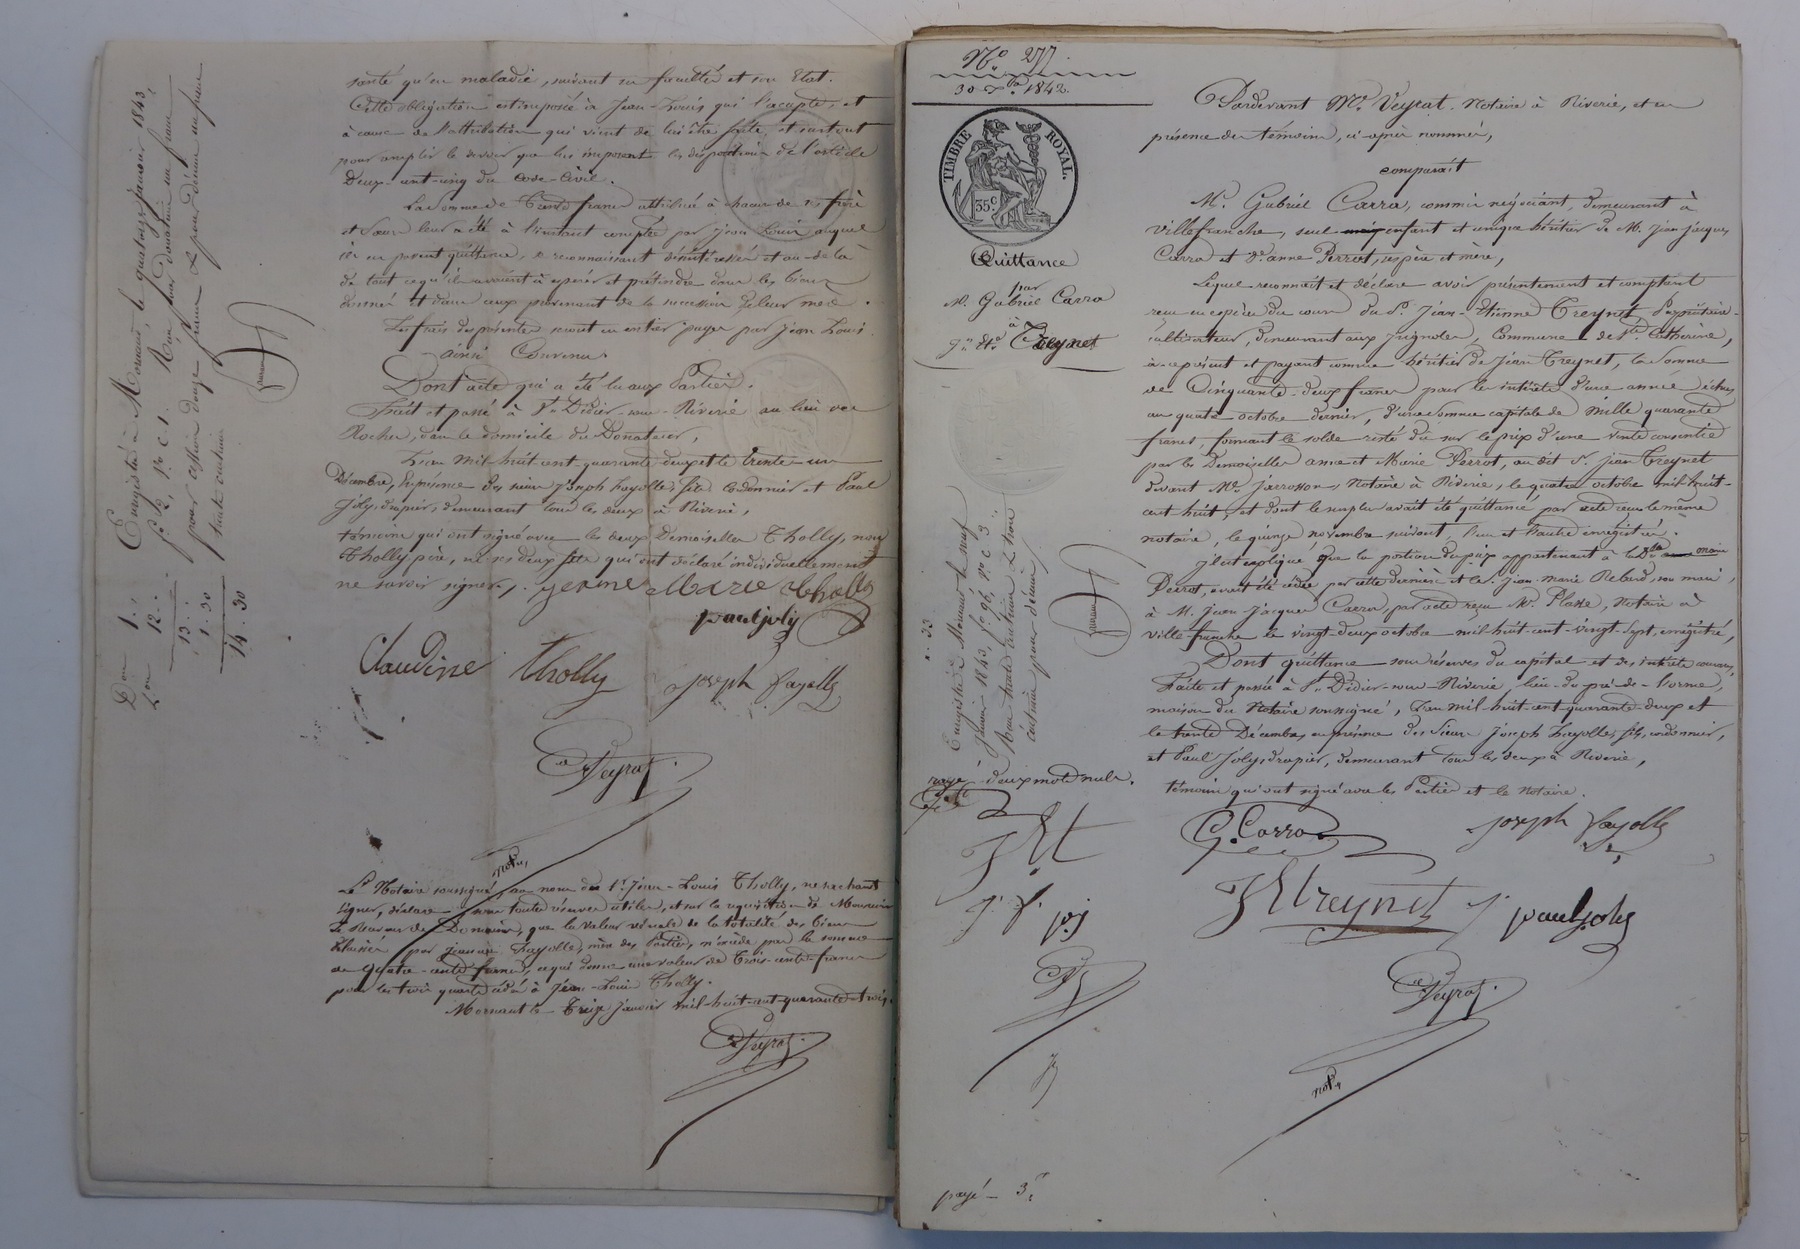 santé qu'en maladie, suivant sa fortune et son Etat.
Cette obligation est imposée à Jean-Louis qui l'accepte, et
à cause de l'attribution qui vient de lui être faite, et surtout
pour remplir le devoir que lui imposent les dispositions de l'article
Deux-cent-cinq du Code-Civil.
La Somme de Trente francs attribuée à chacun de ses frère
et Sœurs leur a été à l'instant comptée par Jean Louis auquel
ils en passent quittance, se reconnaissant désintéressés et au-delà
de tout ce qu'ils avaient à espérer et prétendre dans les biens
donnés et dans ceux provenant de la succession de leur mère.
Les frais des présentes seront en entier payés par Jean Louis.
Ainsi Convenu.
Dont acte qui a été lu aux Parties.
Fait et passé à St. Didier-sous-Riverie au lieu des
Rocher, dans le domicile du Donateur,
L'an mil-huit-cent-quarante-deux et le trente-un
Décembre, En présence des sieurs Joseph Fayolle, fils, Cordonnier et Paul
Joly, drapier, demeurant tous les deux à Riverie,
témoins qui ont signé avec les deux Demoiselles Tholly, non
Tholly père, ni ses deux fils qui ont déclaré individuellement
ne savoir signer. Jeanne Marie Tholly
paul joly
Claudine Tholly Joseph fayolle
Peyrat
notre
Le Notaire soussigné au nom du Sr. Jean-Louis Tholly, ne sachant
signer, déclare sous toutes réserves utiles, et sur la réquisition de Monsieur
le Receveur des Domaines, que la valeur vénale de la totalité des biens
délaissés par Jeanne Fayolle, mère des Parties, n'excède pas la somme
de quatre-cents francs, ce qui donne une valeur de trois-cents-francs
pour les trois quarts cédés à Jean-Louis Tholly.
Mornant le Treize Janvier mil-huit-cent-quarante-trois.
Peyrat
Enregistré à Mornant, le quatorze janvier 1843,
fo. 2, Vo. c 1.
Don 1 . "
Son 12 . "
13 . "
1 . 30
14 . 30
No. 277.
30 Xbre 1842.
TIMBRE ROYAL.
35 C
Quittance
par
M. Gabriel Carra
à
Jn. Ete. Treynet
Pardevant Me. Peyrat, Notaire à Riverie, et en
présence des témoins, ci-après nommés,
comparaît
M. Gabriel Carra, commis négociant, demeurant à
Villefranche, seul enfant et unique héritier de M. Jean Jacques
Carra et De. Anne Perrot, ses père et mère,
Lequel reconnaît et déclare avoir présentement et comptant
reçu en espèces du cours du Sr. Jean-Etienne Treynet, Propriétaire-
cultivateur, demeurant aux Juignoles, Commune de Ste. Catherine,
à ce présent et payant comme héritier de Jean Treynet, la Somme
de Cinquante-deux francs pour les intérêts d'une année échus
au quatre octobre dernier, d'une somme capitale de mille quarante
francs, formant le solde resté dû sur le prix d'une vente consentie
par les Demoiselles Anne et Marie Perrot, au dit Sr. Jean Treynet
devant Me. Jarrosson, Notaire à Riverie, le quatre octobre mil-huit-
cent-huit, et dont le surplus avait été quittancé par acte reçu le même
notaire, le quinze novembre suivant, l'un et l'autre enregistrés.
Il est expliqué que la portion du prix appartenant à la De. Marie
Perrot, avait été cédée par cette dernière et le Sr. Jean-Marie Rebard, son mari,
à M. Jean Jacques Carra, par acte reçu Me. Plasse, Notaire à
Villefranche le vingt-deux octobre mil-huit-cent-vingt-sept, enregistré,
Dont quittance sous réserves du capital et des intérêts courans,
Faite et passée à St. Didier-sous-Riverie, lieu-du-pré-de-l'orme,
maison du Notaire soussigné, l'an mil-huit-cent-quarante-deux et
le trente Décembre, en présence des Sieurs Joseph Fayolle, fils, cordonnier,
et Paul Joly, drapier, demeurant tous les deux à Riverie,
témoins qui ont signé avec les Parties et le Notaire.
G. Carra Joseph fayolle
J E treynet paul joly
Peyrat
notre
Enregistré à Mornant le neuf
Janvier 1843, fo. 96, Vo. c 3
rayé deux mots nuls.
J E t
J. f. p. j
payé — 3 f